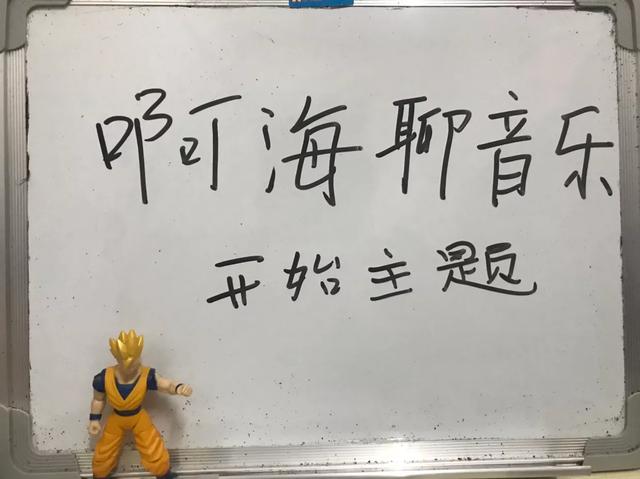 啊海聊音乐
开始主题